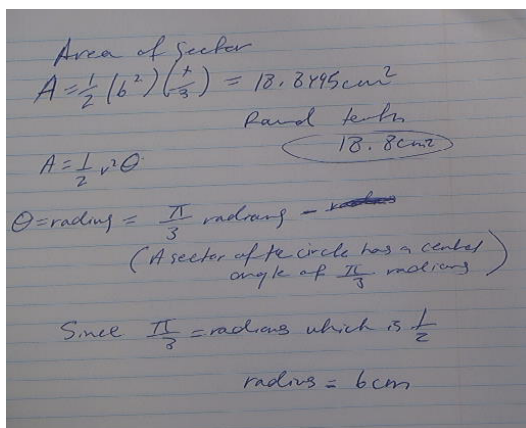 Area of Sector
A = 1/2 (6²)(π/3) = 18.8495cm²
Round tenth
18.8cm²
A = 1/2 r²θ
θ = radius = π/3 radians –
(A sector of the circle has a central
angle of π/3 radians)
Since π/3 = radians which is 1/2
radius = 6cm